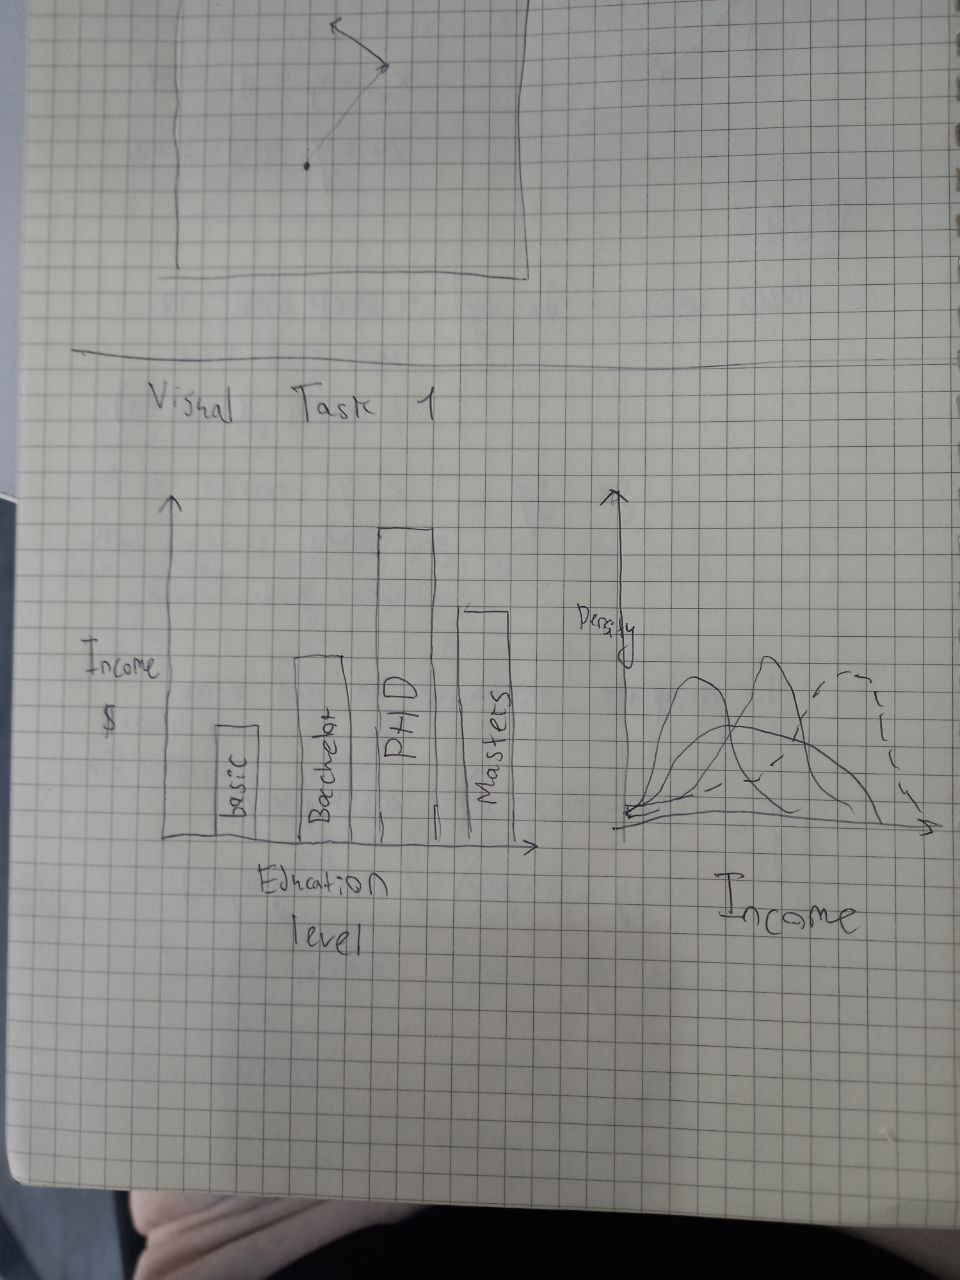 Visual Task 1
Income
$
basic
Bachelor
PHD
Masters
Education
level
Density
Income